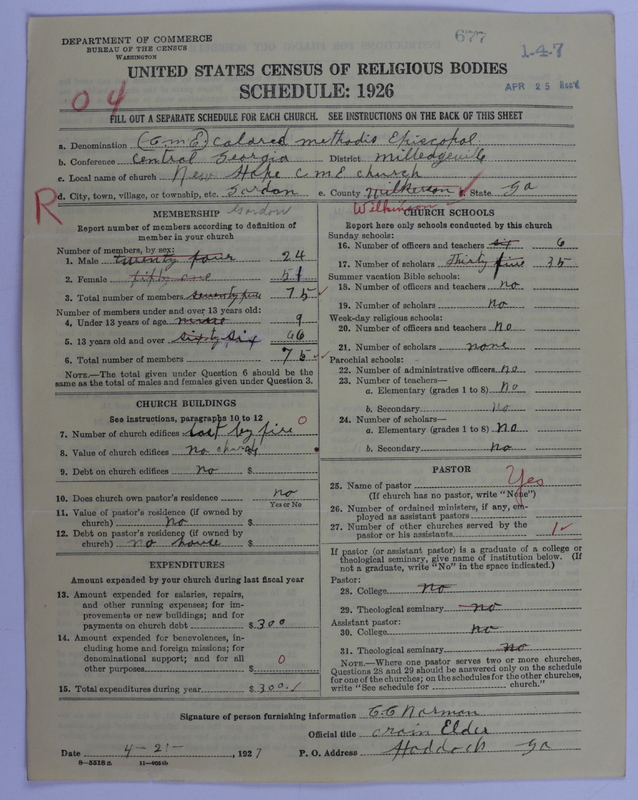 DEPARTMENT OF COMMERCE
BUREAU OF THE CENSUS
WASHINGTON
677
1-4-7
APR 25
UNITED STATES CENSUS OF RELIGIOUS BODIES
SCHEDULE: 1926
04
FILL OUT A SEPARATE SCHEDULE FOR EACH CHURCH. SEE INSTRUCTIONS ON THE BACK OF THIS SHEET
a. Denomination (C M E) Colored methodis Episcopal
b. Conference Central Georgia District Milledgeville
c. Local name of church New Hope C M E church
R
d. City, town, village, or township, etc. Gordon e. County Wilkerson f. State Ga
Gordon Wilkinson
MEMBERSHIP
Report number of members according to definition of
member in your church
Number of members, by sex:
1. Male twenty four 24
2. Female fifty one 51
3. Total number of members seventy five 75
Number of members under and over 13 years old:
4. Under 13 years of age nine 9
5. 13 years old and over sixty six 66
6. Total number of members 75
NOTE.—The total given under Question 6 should be
same as the total of males and females given under Question 3.
CHURCH BUILDINGS
See instructions, paragraphs 10 to 12
7. Number of church edifices lost by fire 0
8. Value of church edifices no church
9. Debt on church edifices no $
10. Does church own pastor's residence no
Yes or No
11. Value of pastor's residence (if owned by
church) no $
12. Debt on pastor's residence (if owned by
church) no house $
EXPENDITURES
Amount expended by your church during last fiscal year
13. Amount expended for salaries, repairs,
and other running expenses; for im-
provements or new buildings; and for
payments on church debt $300
14. Amount expended for benevolences, in-
cluding home and foreign missions; for
denominational support; and for all
other purposes $ 0
15. Total expenditures during year $300
CHURCH SCHOOLS
Report here only schools conducted by this church
Sunday schools:
16. Number of officers and teachers six 6
17. Number of scholars Thirty five 35
Summer vacation Bible schools:
18. Number of officers and teachers no
19. Number of scholars no
Week-day religious schools:
20. Number of officers and teachers no
21. Number of scholars none
Parochial schools:
22. Number of administrative officers no
23. Number of teachers—
a. Elementary (grades 1 to 8) no
b. Secondary no
24. Number of scholars—
a. Elementary (grades 1 to 8) no
b. Secondary no
PASTOR
25. Name of pastor Yes
(If church has no pastor, write "None")
26. Number of ordained ministers, if any, em-
ployed as assistant pastors
27. Number of other churches served by the
pastor or his assistants 1
If pastor (or assistant pastor) is a graduate of a college or
theological seminary, give name of institution below. (If
not a graduate, write "No" in the space indicated.)
Pastor:
28. College no
29. Theological seminary no
Assistant pastor:
30. College no
31. Theological seminary no
NOTE.—Where one pastor serves two or more churches,
Questions 28 and 29 should be answered only on the schedule
for one of the churches; on the schedules for the other churches,
write "See schedule for church."
Signature of person furnishing information C. C. Norman
Official title Elder
Date 4-21-, 1927 P. O. Address Haddock Ga
8-5518 a